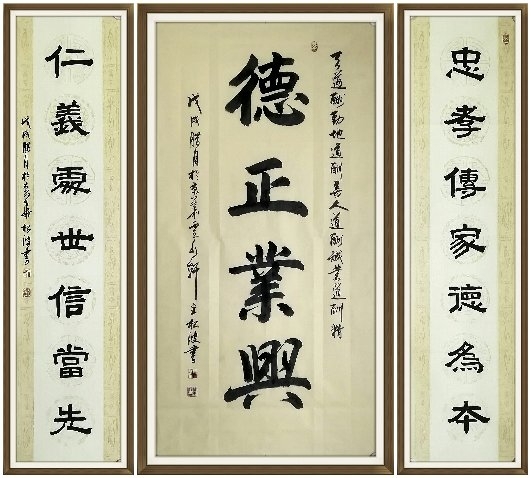 忠孝傳家德為本
天道酬勤地道酬善人道酬誠業道酬精
德正業興
戊戌腊月於京華雲水軒主松波書
仁義處世信當先
戊戌腊月於京華松波書